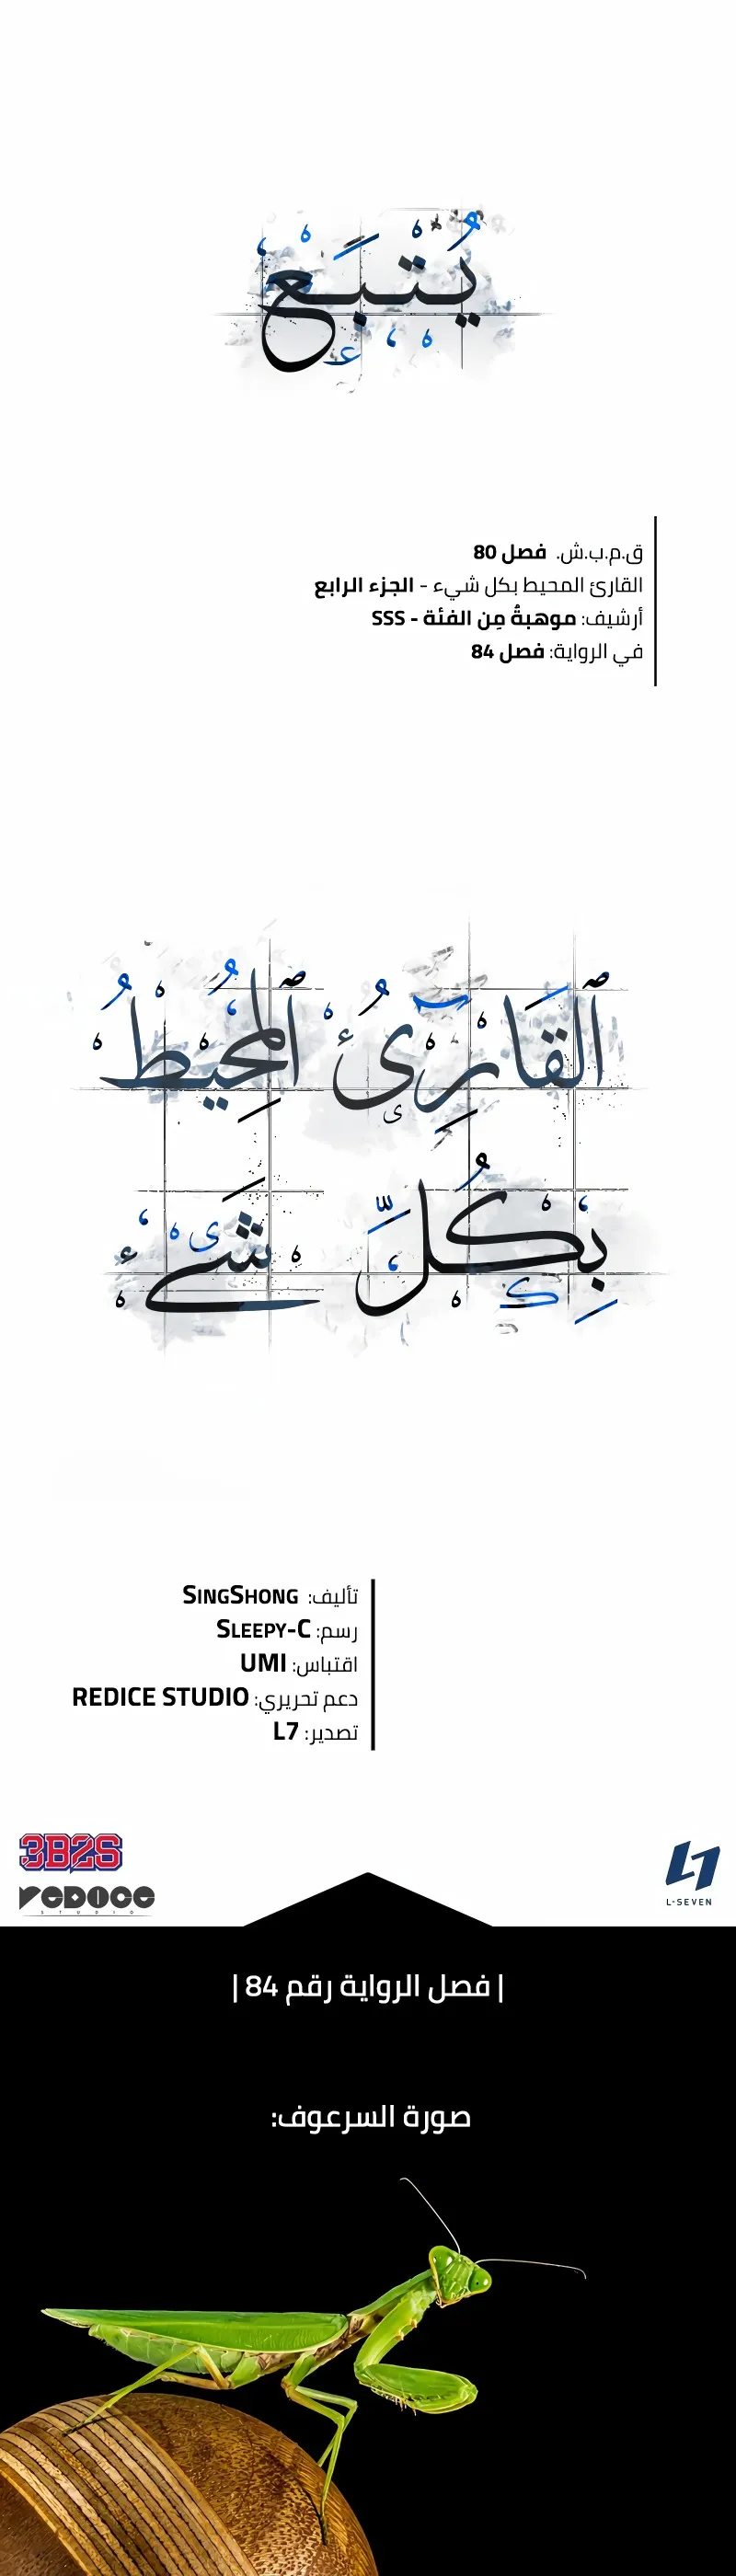 يُتبَع
ق.م.ب.ش. فصل 80
القارئ المحيط بكل شيء - الجزء الرابع
أرشيف: موهبةُ مِن الفئة - SSS
في الرواية: فصل 84
ٱلقَارِئُ ٱلمُحِيطُ
بِكُلِّ شَيء
تأليف: SINGSHONG
رسم: SLEEPY-C
اقتباس: UMI
دعم تحريري: REDICE STUDIO
تصدير: L7
3B2S
REDICE
STUDIO
L7
L-SEVEN
| فصل الرواية رقم 84 |
صورة السرعوف: